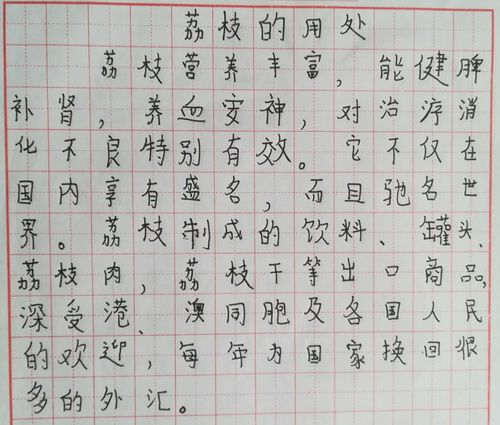 荔枝的用处
荔枝营养丰富，能健脾
补肾，养血安神，对治疗消
化不良特别有效。它不仅在
国内享有盛名，而且驰名世
界。荔枝制成的饮料、罐头、
荔枝肉，荔枝干等出口商品，
深受港、澳同胞及各国人民
的欢迎，每年为国家换回很
多的外汇。